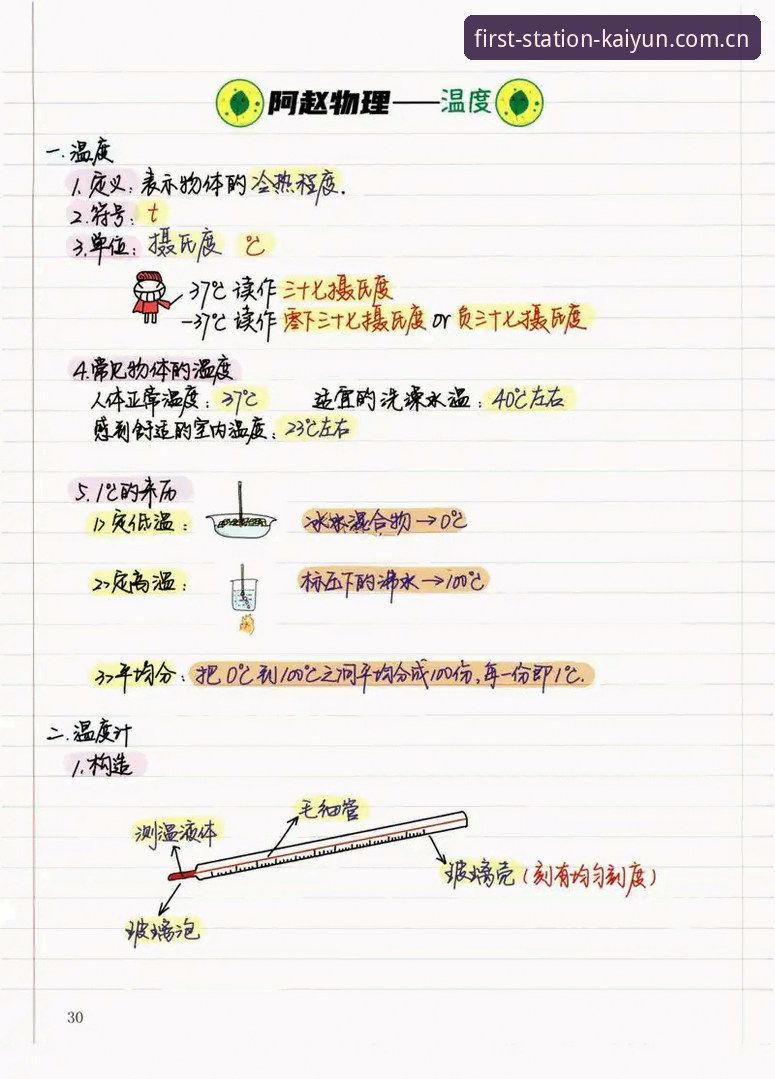 first-station-kaiyun.com.cn
阿赵物理——温度
一.温度
1.定义:表示物体的冷热程度.
2.符号:t
3.单位:摄氏度 ℃
37℃读作三十七摄氏度
-37℃读作零下三十七摄氏度or负三十七摄氏度
4.常见物体的温度
人体正常温度:37℃ 适宜的洗澡水温:40℃左右
感到舒适的室内温度:23℃左右
5.1℃的来历
1>定低温: 冰水混合物→0℃
2>定高温: 标压下的沸水→100℃
3>平均分:把0℃到100℃之间平均分成100份,每一份即1℃.
二.温度计
1.构造
毛细管
测温液体
玻璃壳(刻有均匀刻度)
玻璃泡
30